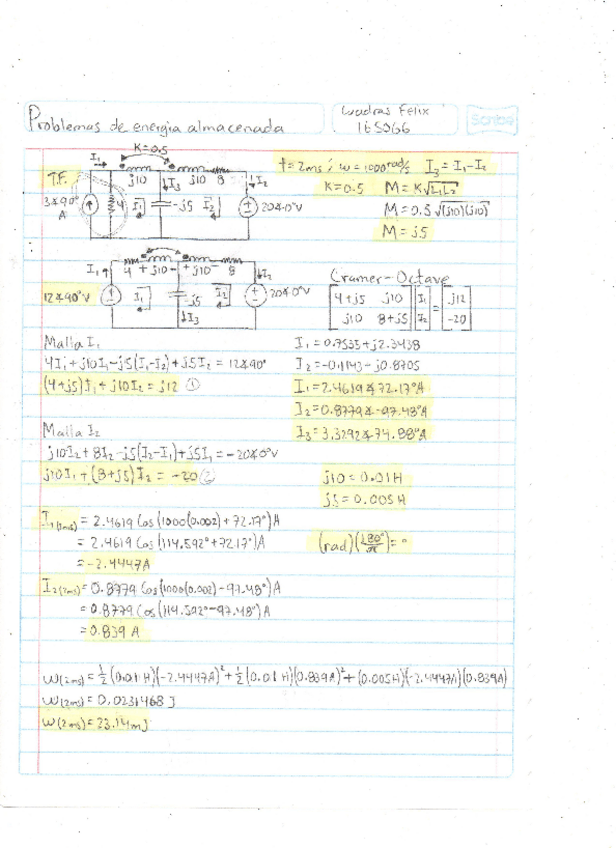 Problemas de energia almacenada
Cuadras Felix
165066
Scribe
K=0.5
I₁
j10
j10 8
T.F.
↓I₃
↓I₂
3∡90°
A
4
I₁
-j5
I₂
20∡0°V
t=2ms; ω=1000rad/s I₃=I₁-I₂
K=0.5 M=K√L₁L₂
M=0.5√(j10)(j10)
M=j5
I₁
4 + j10 - + j10 - 8
↓I₂
12∡90°V
I₁
-j5
I₂
20∡0°V
↓I₃
Cramer-Octave
4+j5 j10 I₁ = j12
j10 8+j5 I₂ -20
Malla I₁
4I₁+j10I₁-j5(I₁-I₂)+j5I₂=12∡90°
(4+j5)I₁+j10I₂=j12 ①
I₁=0.7535+j2.3438
I₂=-0.1143-j0.8705
I₁=2.4619∡72.17°A
I₂=0.8779∡-97.48°A
I₃=3.3292∡74.88°A
Malla I₂
j10I₂+8I₂-j5(I₂-I₁)+j5I₁=-20∡0°V
j10I₁+(8+j5)I₂=-20 ②
j10=0.01H
j5=0.005H
I₁(2ms)=2.4619 Cos(1000(0.002)+72.17°)A
=2.4619 Cos(114.592°+72.17°)A
=-2.4447A
(rad)(180°/π)=°
I₂(2ms)=0.8779 Cos(1000(0.002)-97.48°)A
=0.8779 Cos(114.592°-97.48°)A
=0.839 A
W(2ms)=½(0.01H)(-2.4447A)²+½(0.01H)(0.839A)²+(0.005H)(-2.4447A)(0.839A)
W(2ms)=0.0231468 J
W(2ms)=23.14mJ